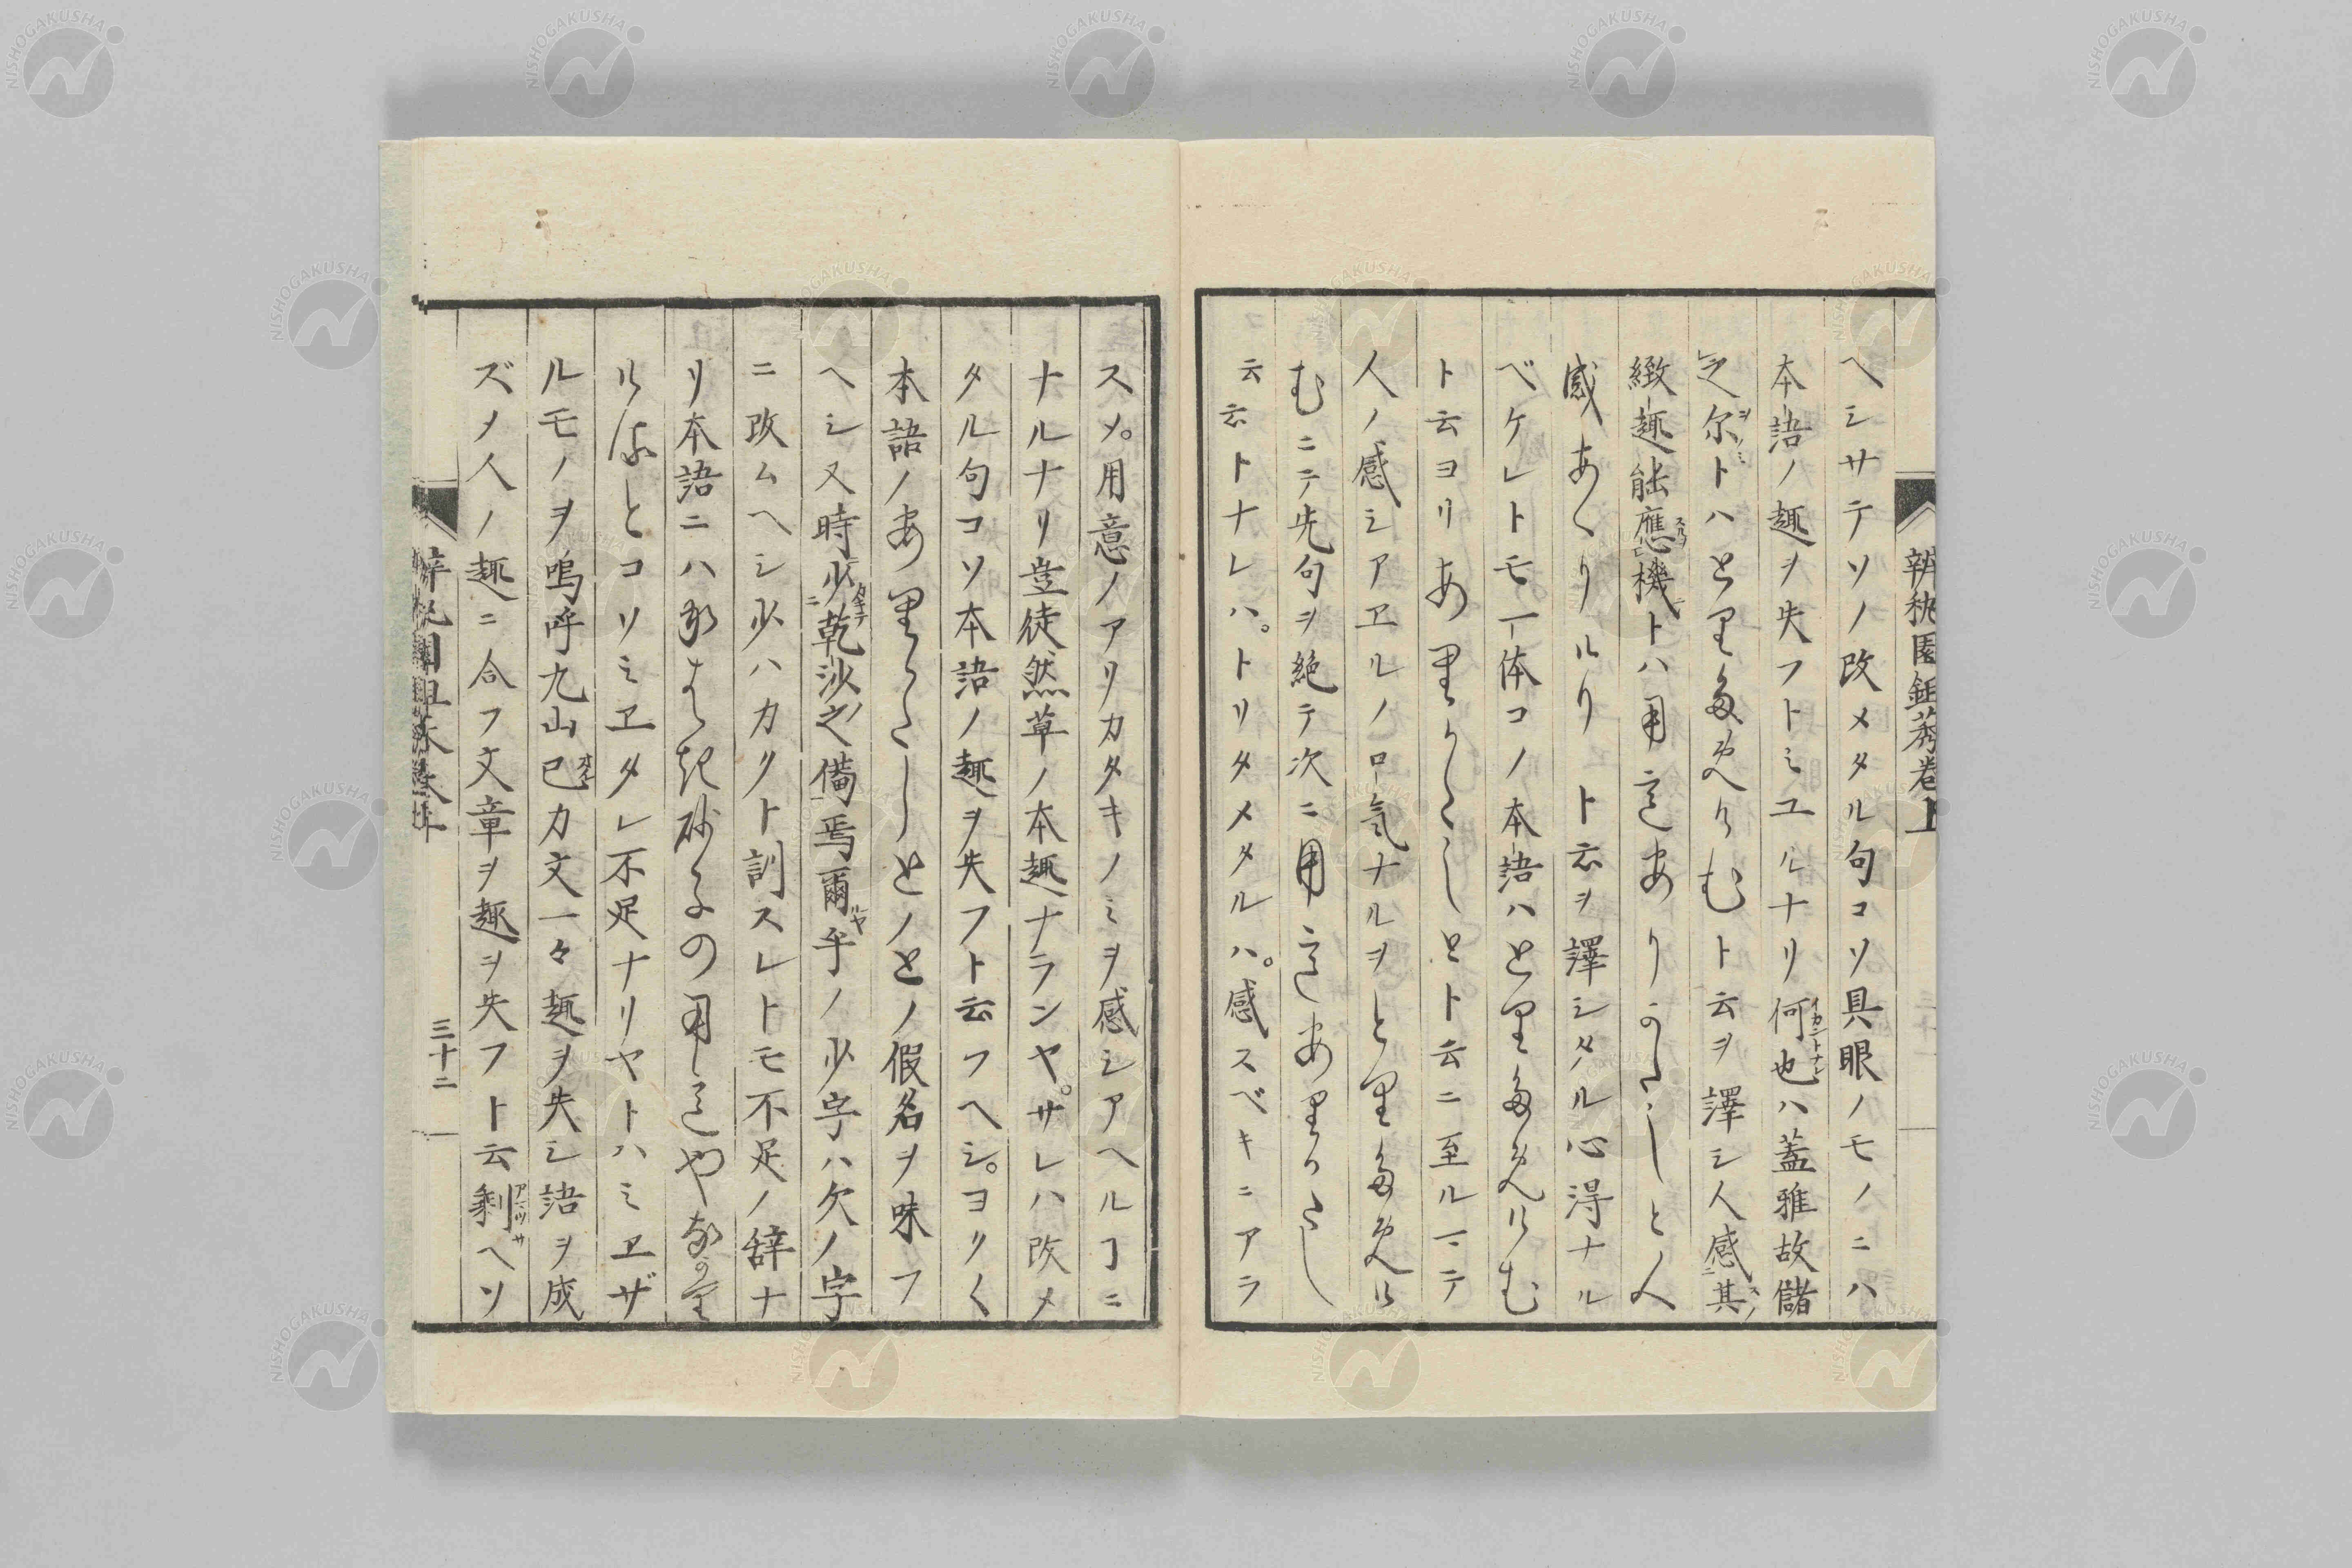 辨秇園鉏莠卷上
ヘシサテソノ改メタル句コソ具眼ノモノニハ
本語ノ趣ヲ失フトミユルナリ何也ハ蓋雅故儲
之尓トハとり多めけむト云ヲ譯シ人感其
緻趣能應機トハ用意ありかたしと人
感あへりけり ト云ヲ譯シタル心得ナル
ベケレトモ一体コノ本語ハとり多めけむ
ト云ヨリありかたしとト云ニ至ルマテ
人ノ感シアヱルノ口気ナルヲとり多めけ
むニテ先句ヲ絶テ次ニ用意ありかたし
云云トナレハ。トリタメタルハ。感スベキニアラ
スメ。用意ノアリカタキノミヲ感シアヘルヿニ
ナルナリ豈徒然草ノ本趣ナランヤ。サレハ改メ
タル句コソ本語ノ趣ヲ失フト云フヘシ。ヨリ〱
本語ノありかたしとノとノ假名ヲ味フ
ヘシ又時少乾沙之備焉爾乎ノ少字ハ欠ノ字
ニ改ムヘシ少ハカクト訓スレトモ不足ノ辞ナ
リ本語ニハ
とコソミヱタレ不足ナリヤトハミヱザ
ルモノヲ嗚呼九山已カ文一々趣ヲ失シ語ヲ成
ズメ人ノ趣ニ合フ文章ヲ趣ヲ失フト云剰ヘソ
三十二